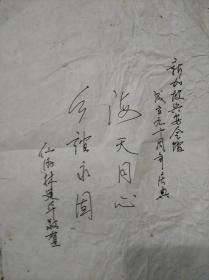 新加坡兴安会馆
成立九十周年庆典
海天同心
乡谊永固
仙游林建华敬贺